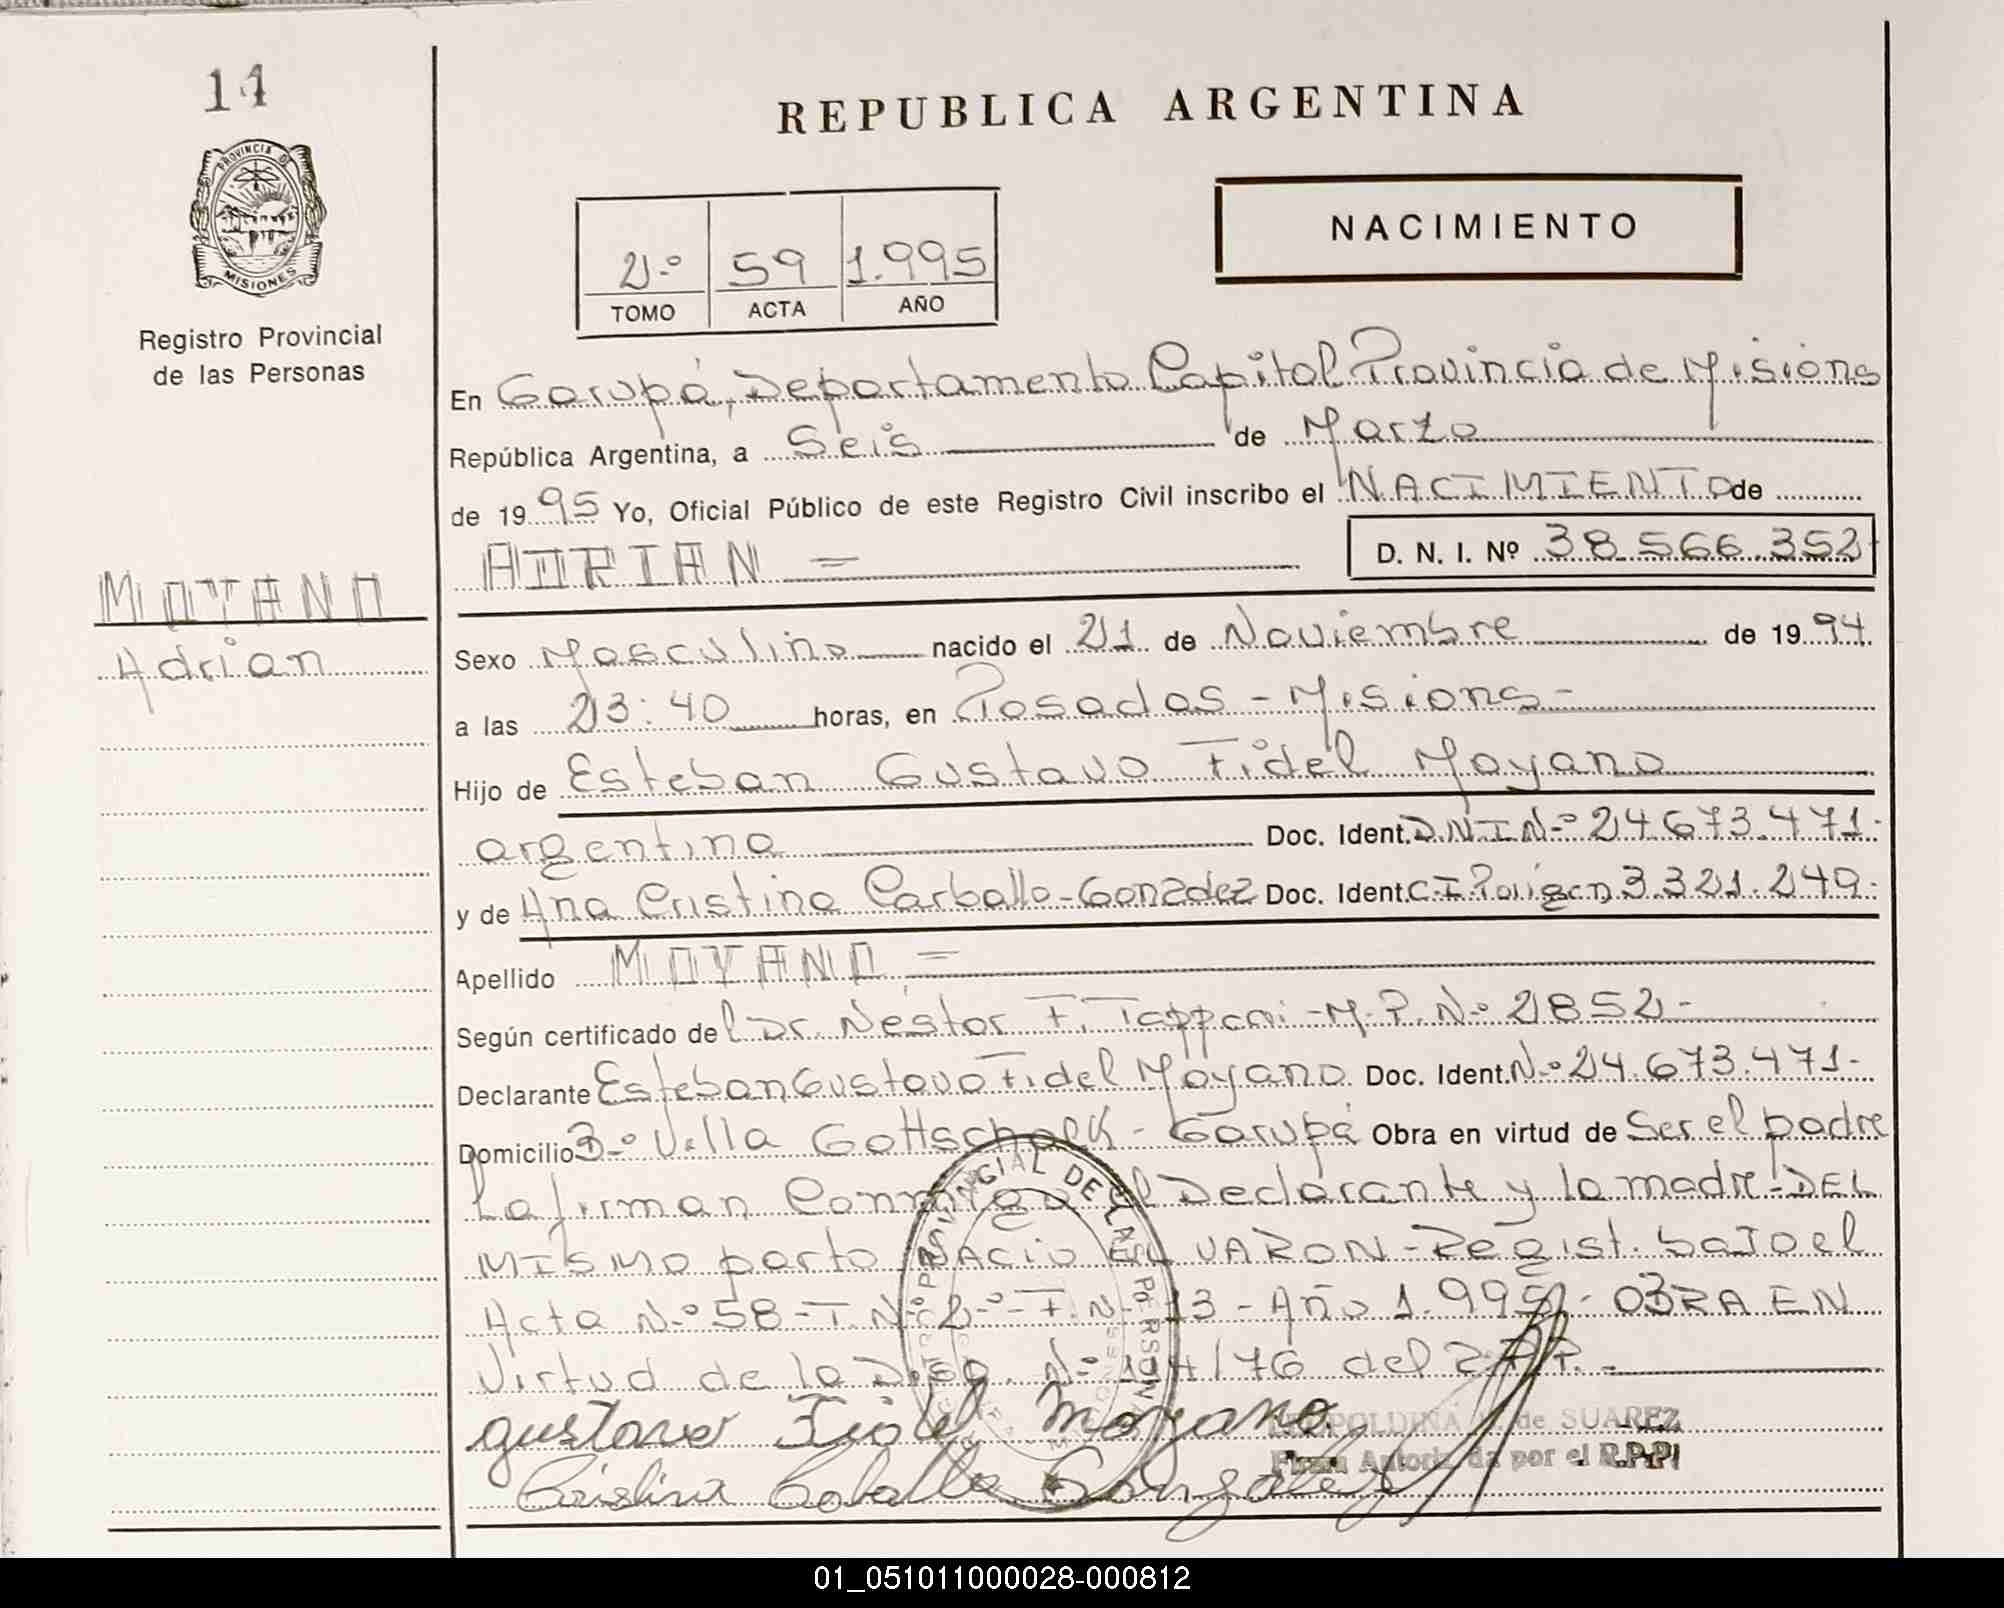 14
REPUBLICA ARGENTINA
PROVINCIA DE
MISIONES
NACIMIENTO
2.º 59 1.995
TOMO ACTA AÑO
Registro Provincial
de las Personas
En Garupá, Departamento Capital Provincia de Misions
República Argentina, a Seis de Marzo
de 1995 Yo, Oficial Público de este Registro Civil inscribo el NACIMIENTO de
ADRIAN = D. N. I. Nº 38.566.352
MOYANO
Adrian
Sexo Masculino nacido el 21 de Noviembre de 1994.
a las 23:40 horas, en Posadas - Misions -
Hijo de Esteban Gustavo Fidel Moyano
argentina Doc. Ident. D.N.I Nº 24.673.471.
y de Ana Cristina Carballo-Gonzalez Doc. Ident. C.I. 3.321.249.
Apellido MOYANO =
Según certificado del Dr. Nestor F. M.P. Nº 2852-
Declarante Esteban Gustavo Fidel Moyano Doc. Ident. Nº 24.673.471-
Domicilio Bº Villa Gottschalk - Garupá Obra en virtud de Ser el padre
La firman Conmigo el Declarante y la madre. DEL
MISMO parto NACIO EL VARON - Regist. baJo el
Acta Nº 58 - T. Nº 2º - F. Nº 13 - Año 1.995 - OBRA EN
Virtud de la Nº 114/76 del R.P.P. -
gustavo Fidel Moyano
LEOPOLDINA de SUAREZ
Firma Autorizada por el R.P.P
Cristina Caballo Gonzalez
01_051011000028-000812